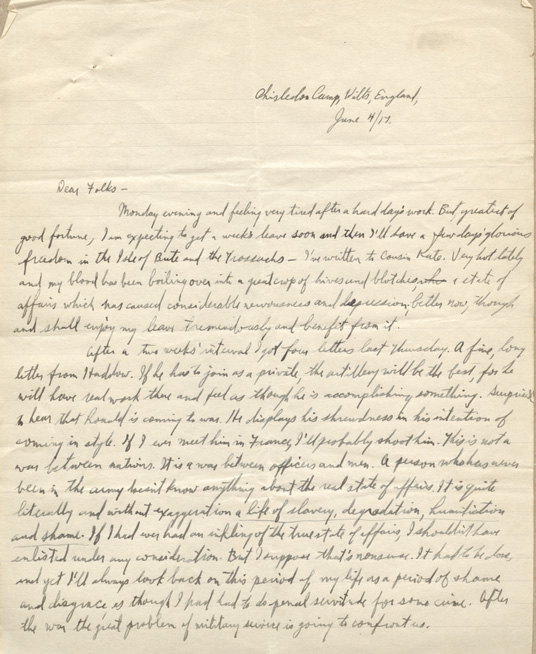 Chisledon Camp, Wilts, England,
June 4/17.
Dear Folks –
Monday evening and feeling very tired after a hard day's work. But, greatest of
good fortune, I am expecting to get a week's leave soon and then I'll have a few days' glorious
freedom in the Isle of Bute and the Trossachs – I've written to Cousin Kate. Very hot lately
and my blood has been boiling over into a great crop of hives and blotches, a state of
affairs which has caused considerable nervousness and depression, better now, though
and shall enjoy my leave tremendously and benefit from it.
After a two weeks' interval I got four letters last Thursday. A fine, long
letter from Haddow. If he has to join as a private, the artillery will be the best, for he
will have real work there and feel as though he is accomplishing something. Surprised
to hear that Ronald is coming to war. He displays his shrewdness in his intention of
coming in style. If I ever meet him in France, I'll probably shoot him. This is not a
war between nations. It is a war between officers and men. A person who has never
been in the army doesn't know anything about the real state of affairs. It is quite
literally and without exaggeration a life of slavery, degradation, humiliation
and shame. If I had ever had an inkling of the true state of affairs, I shouldn't have
enlisted under any consideration. But I suppose that's nonsense. It had to be done,
and yet I'll always look back on this period of my life as a period of shame
and disgrace as though I had had to do penal servitude for some crime. After
the war the great problem of military service is going to confront us.